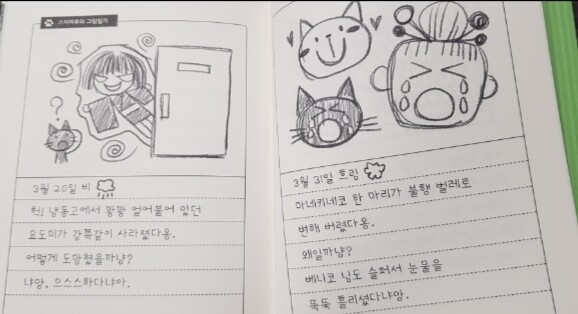 스미마루의 그림일기
?
3월 20일 비
헉! 냉동고에서 꽝꽝 얼어붙어 있던
요도미가 감쪽같이 사라졌다옹.
어떻게 도망쳤을까냥?
냐앙, 으스스하다냐아.
3월 31일 흐림
마네키네코 한 마리가 불행 벌레로
변해 버렸다옹.
왜일까냥?
베니코 님도 슬퍼서 눈물을
뚝뚝 흘리셨다냐앙.